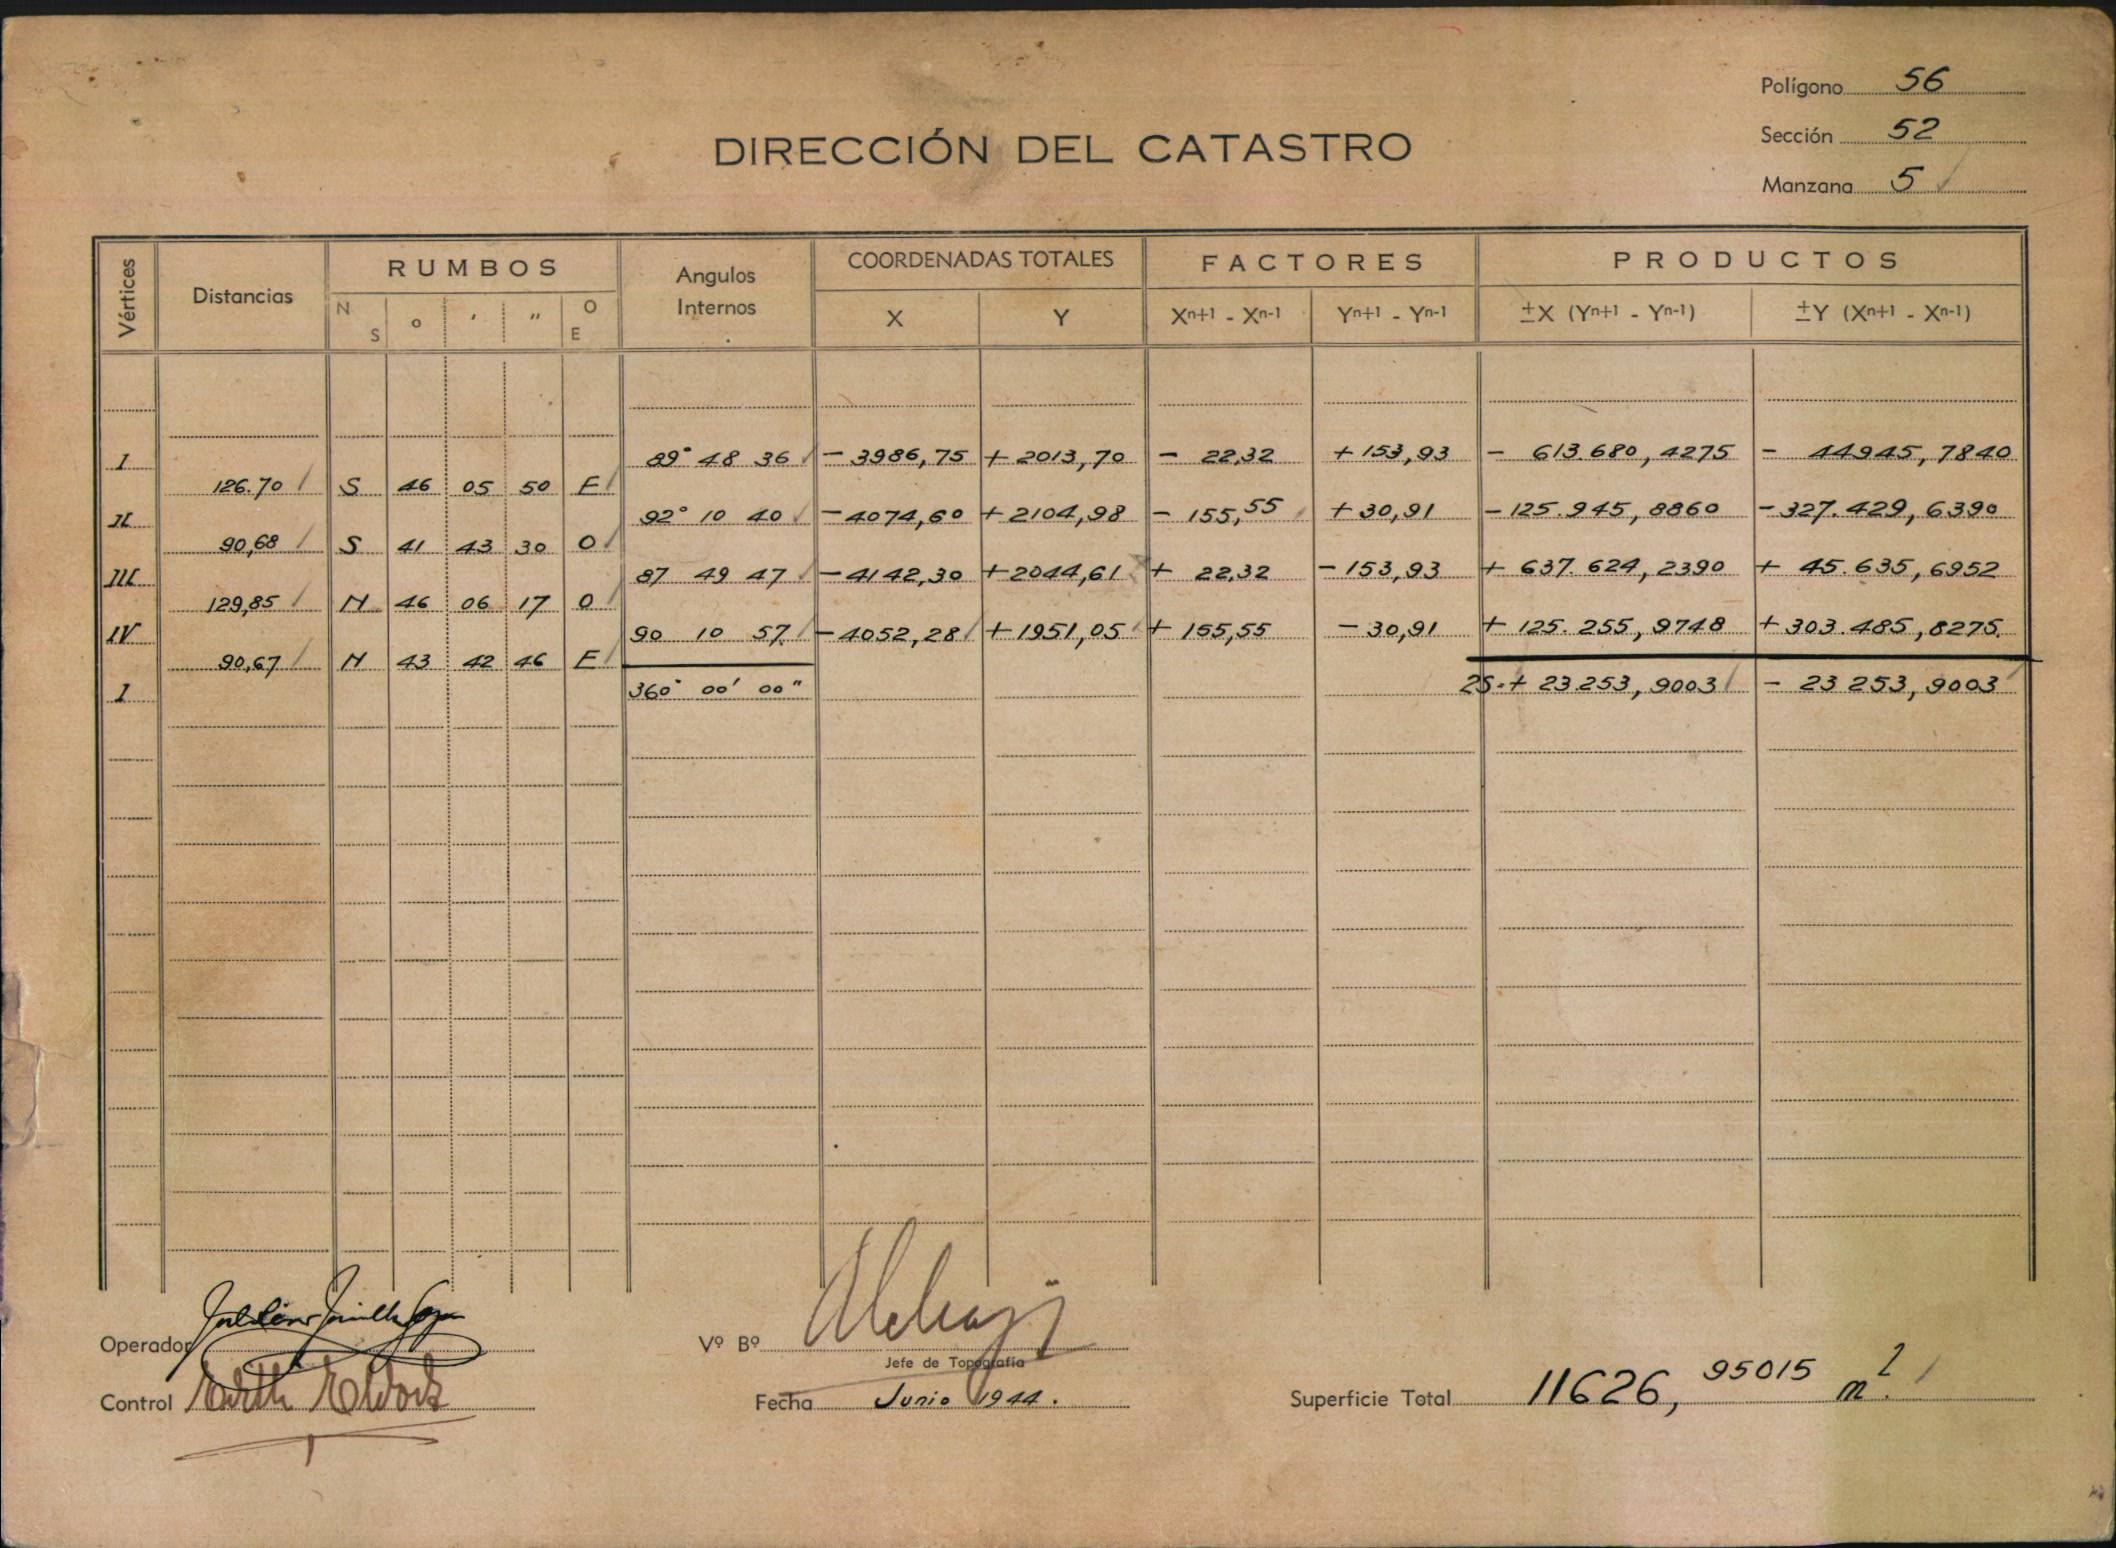 Polígono 56
Sección 52
Manzana 5
DIRECCIÓN DEL CATASTRO
Vértices Distancias RUMBOS Angulos Internos COORDENADAS TOTALES FACTORES PRODUCTOS
N S o ' " O E X Y Xn+1 - Xn-1 Yn+1 - Yn-1 ±X (Yn+1 - Yn-1) ±Y (Xn+1 - Xn-1)
I 89° 48 36 - 3986,75 + 2013,70 - 22,32 + 153,93 - 613.680,4275 - 44945,7840
126.70 S 46 05 50 E
II 92° 10 40 - 4074,60 + 2104,98 - 155,55 + 30,91 - 125.945,8860 - 327.429,6390
90,68 S 41 43 30 O
III 87 49 47 - 4142,30 + 2044,61 + 22,32 - 153,93 + 637.624,2390 + 45.635,6952
129,85 N 46 06 17 O
IV 90 10 57 - 4052,28 + 1951,05 + 155,55 - 30,91 + 125.255,9748 + 303.485,8275
90,67 N 43 42 46 E
I 360° 00' 00" 2S = + 23.253,9003 - 23 253,9003
Operador
Vº Bº
Jefe de Topografía
Control
Fecha Junio 1944.
Superficie Total 11626,95015 m2.